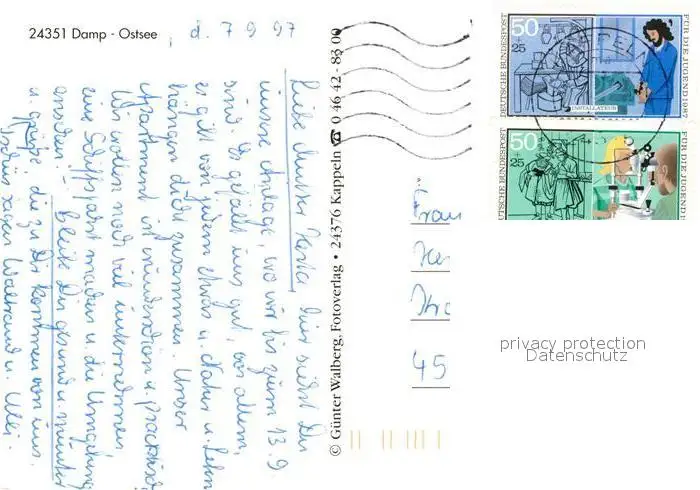 24351 Damp - Ostsee, d. 7 9 97
Liebe Mutter Herta, hier siehst Du
unsere Anlage, wo wir bis zum 13.9
sind. Es gefällt uns gut, vor allem,
es gibt von jedem etwas u. Natur u. Lehn
hängen dicht zusammen. Unser
Apartment ist u. praktisch
Wir wollen noch viel unternehmen
eine Schiffsfahrt machen u. die Umgebung
Bleib Du gesund u. munter
u. grüße die zu Dir kommen von uns.
Tschüs sagen Waltraud u. Uli.
© Günter Walberg, Fotoverlag • 24376 Kappeln ☎ 0 46 42 - 83 00
50
+25
DEUTSCHE BUNDESPOST
INSTALLATEUR
FÜR DIE JUGEND 1987
50
+25
DEUTSCHE BUNDESPOST
FÜR DIE JUGEND
Frau
Her
45
privacy protection
Datenschutz